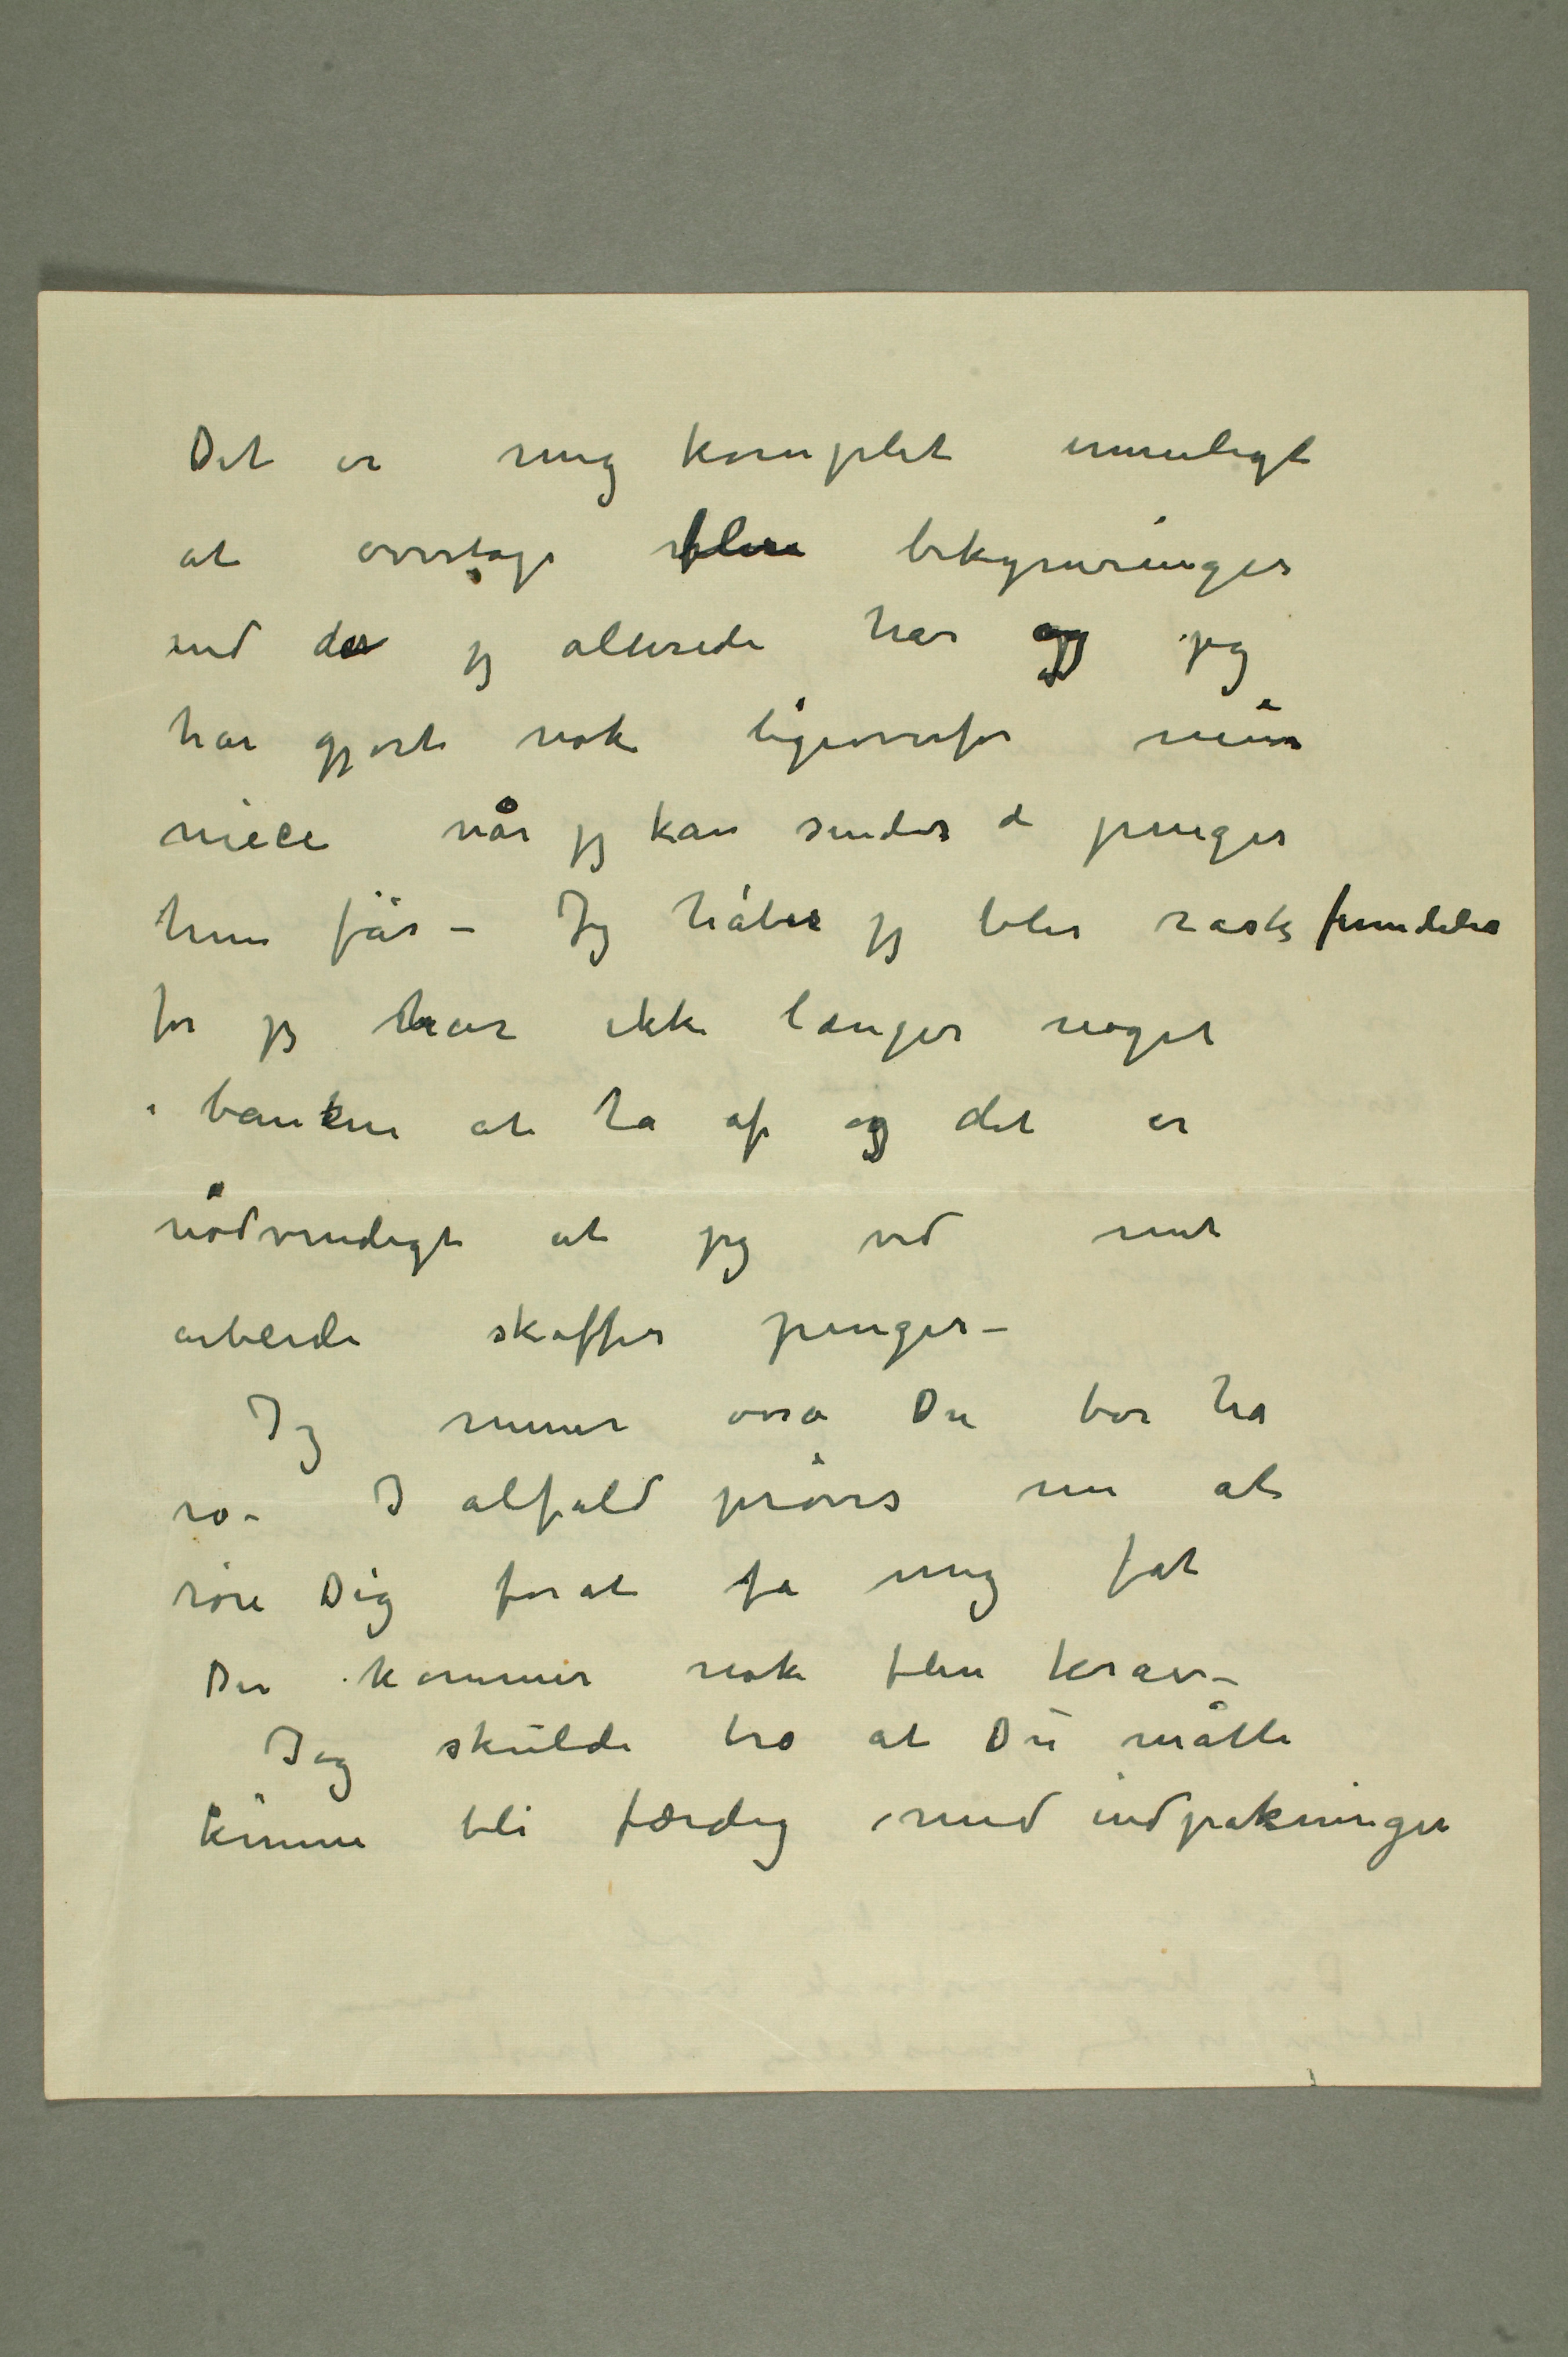 Det er mig komplet umuligt
at overtage flere bekymringer
end der jeg allerede har og jeg
har gjort nok ligeoverfor min
niece når jeg kan sender de penger
hun får – Jeg håber jeg blir rask fremdeles
for jeg har ikke længer noget
i banken at ta af og det er
nødvendigt at jeg ved mit
arbeide skaffer penger –
Jeg mener osså Du bør ha
ro – I alfald prøves nu at
røre Dig forat få mig fat
Der kommer nok flere krav –
Jeg skulde tro at Du måtte
kunne bli færdig med indpakninger